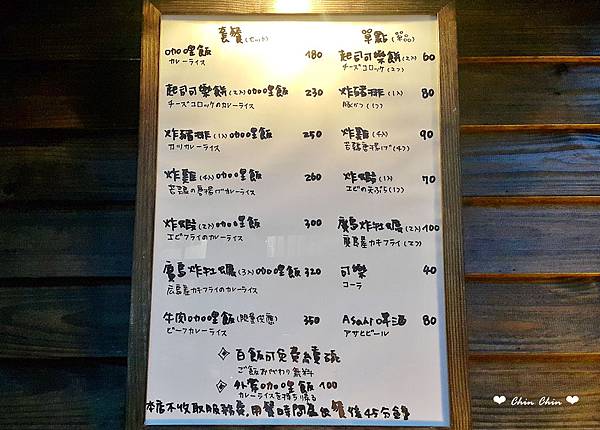 套餐(セット)
咖哩飯 180
カレーライス
起司可樂餅(2入)咖哩飯 230
チーズコロッケのカレーライス
炸豬排(1入)咖哩飯 250
カツカレーライス
炸雞(4入)咖哩飯 260
若鶏の唐揚げカレーライス
炸蝦(2入)咖哩飯 300
エビフライのカレーライス
廣島炸牡蠣(3入)咖哩飯 320
広島産カキフライのカレーライス
牛肉咖哩飯(限量供應) 350
ビーフカレーライス
單點(単品)
起司可樂餅(2入) 60
チーズコロッケ(2つ)
炸豬排(1入) 80
豚かつ(1つ)
炸雞(4入) 90
若鶏唐揚げ(4つ)
炸蝦(1入) 70
エビの天ぷら(1つ)
廣島炸牡蠣(2入) 100
廣島産カキフライ(2つ)
可樂 40
コーラ
Asahi啤酒 80
アサヒビール
白飯可免費續碗
ご飯おかわり無料
外帶咖哩飯 100
カレーライスを持ち帰る
本店不收取服務費,用餐時間為供餐後45分鐘
❤ Chin Chin ❤